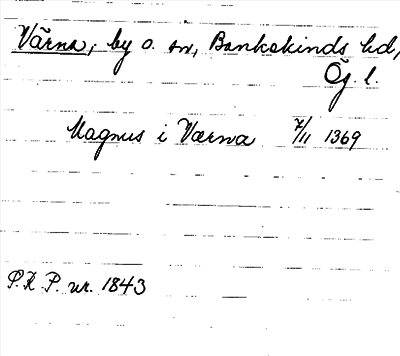 Värna, by o. sn, Bankekinds hd,
Ög. l.
Magnus i Værna 7/11 1369
S.R.P. nr. 1843